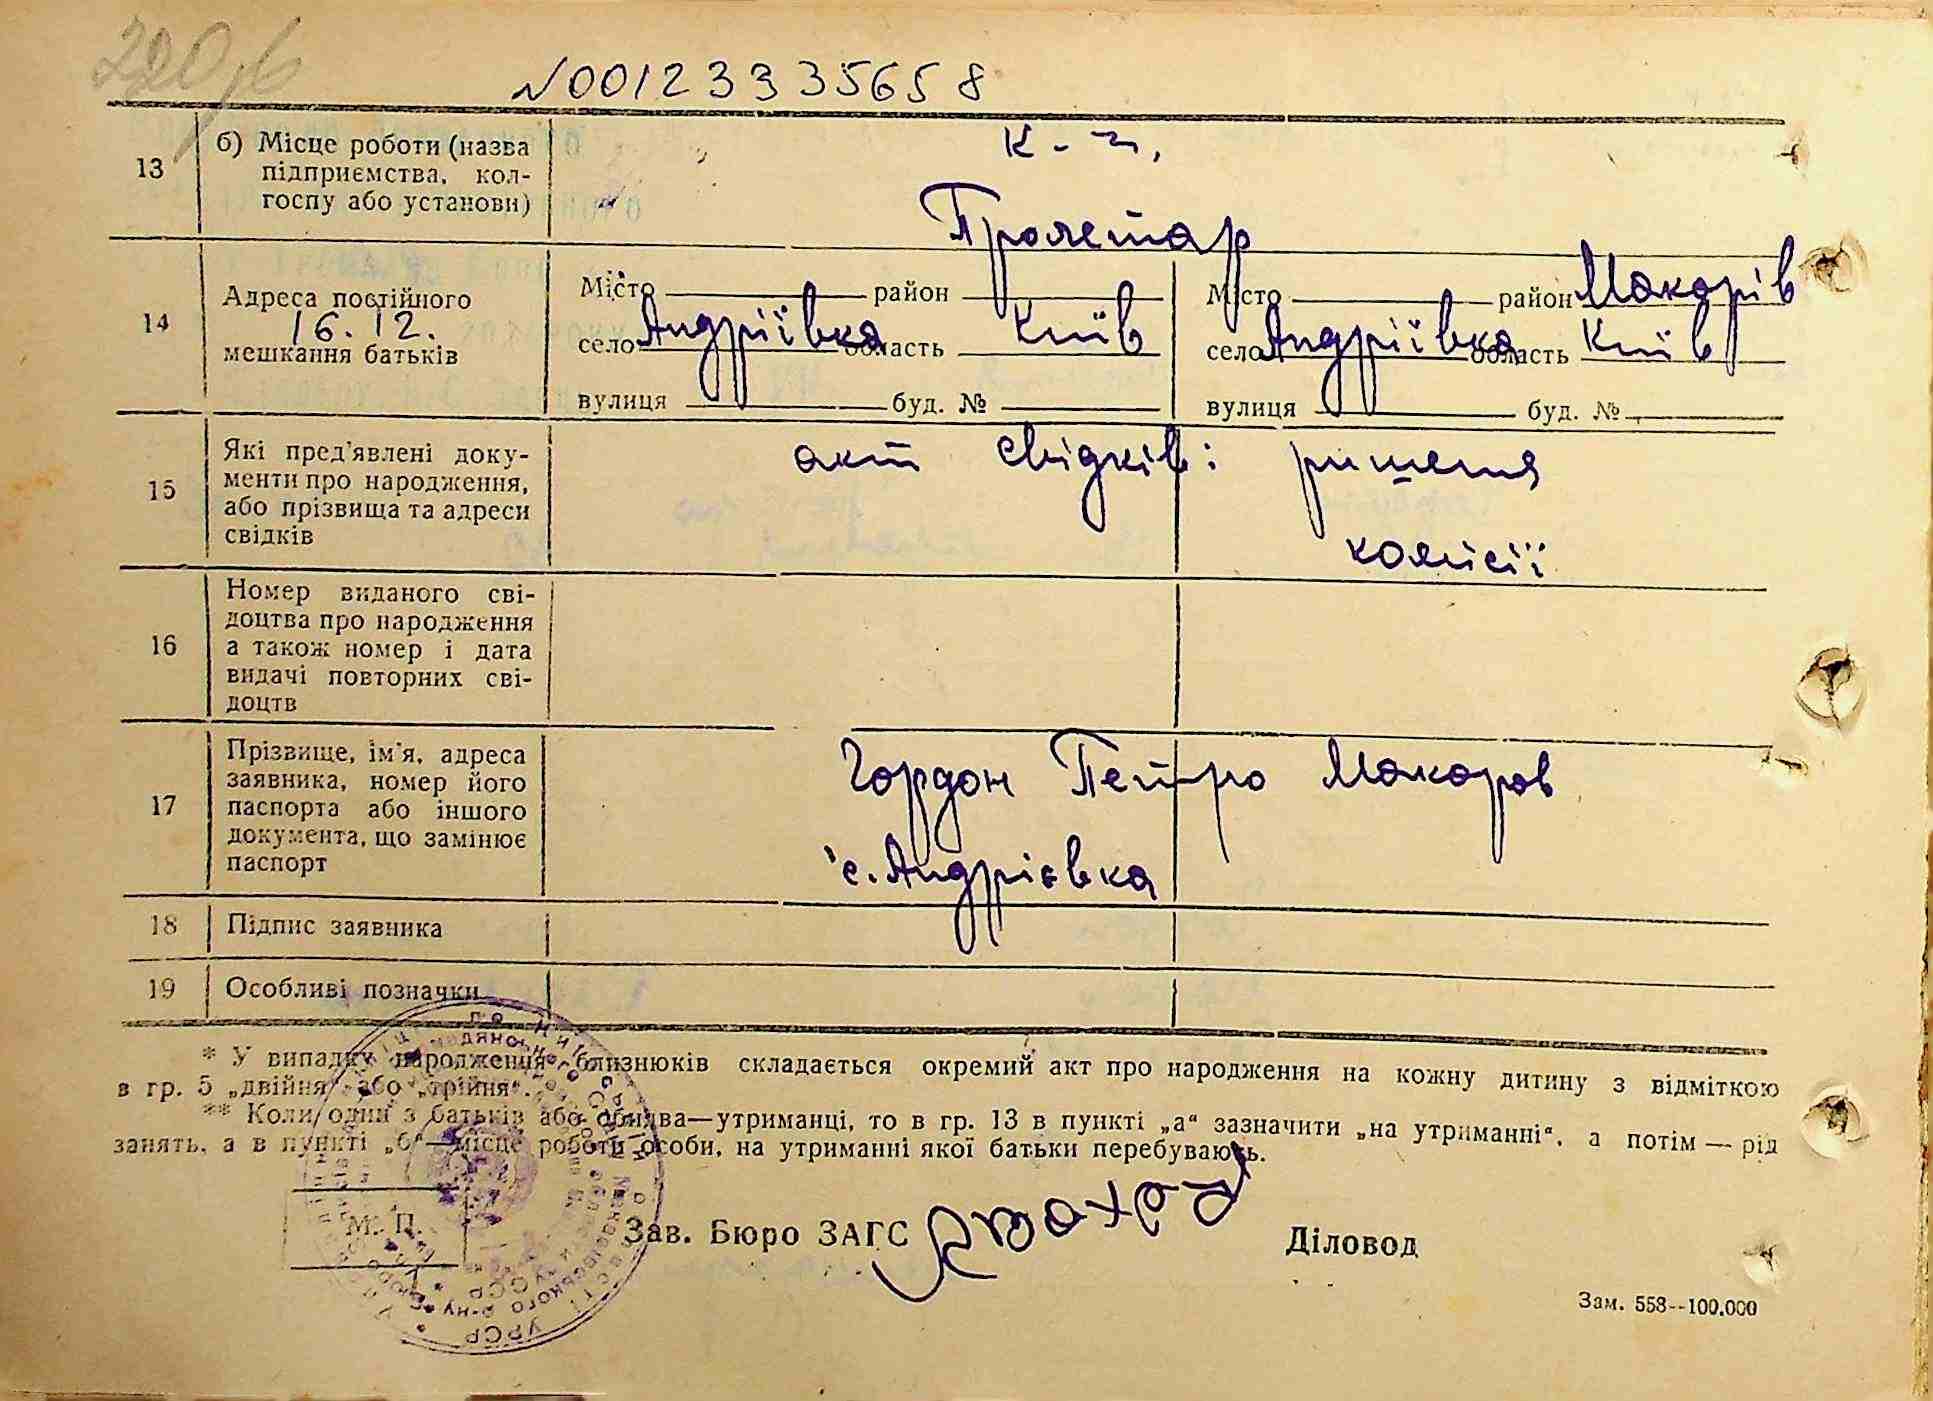 №00123335658
13 б) Місце роботи (назва
підприємства, кол-
госпу або установи)
к-п,
Пролетар
14 Адреса постійного
16.12.
мешкання батьків
Місто район
село Андріївка область Київ
вулиця буд. №
Місто район Макарів
село Андріївка область Київ
вулиця буд. №
15 Які пред'явлені доку-
менти про народження,
або прізвища та адреси
свідків
акт свідків: ришення
комісії
16 Номер виданого сві-
доцтва про народження
а також номер і дата
видачі повторних сві-
доцтв
17 Прізвище, ім'я, адреса
заявника, номер його
паспорта або іншого
документа, що замінює
паспорт
Гордон Петро Макаров
с. Андрієвка
18 Підпис заявника
19 Особливі позначки
* У випадку народження близнюків складається окремий акт про народження на кожну дитину з відміткою
в гр. 5 „двійня“ або „трійня“.
** Коли один з батьків або обидва—утриманці, то в гр. 13 в пункті „а“ зазначити „на утриманні“, а потім — рід
занять, а в пункті „б“—місце роботи особи, на утриманні якої батьки перебувають.
М. П.
Зав. Бюро ЗАГС
Діловод
Зам. 558--100.000